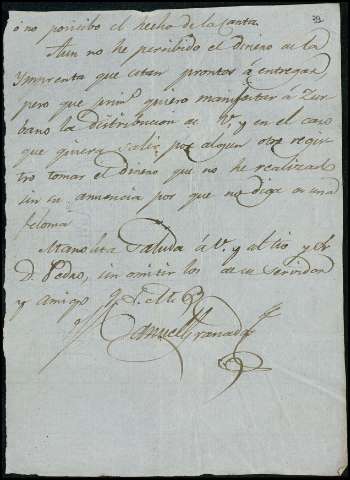 ó no percibo el hecho de la Canta.
Aun no he percibido el dinero de la
Ymprenta que estan prontos á entregar
pero que prim.º quiero manifestar á Zur
bano la distribucion de V. y en el caso
que quiera salir por algun otro regis
tro tomar el dinero que no he realizado
sin su anuencia por que no diga es una
felonia
Manolita Saluda á V. y al tio y
D. Pedro, sin omitir los de su Servidor
y amigo Q. S. M. B.
Manuel Granada